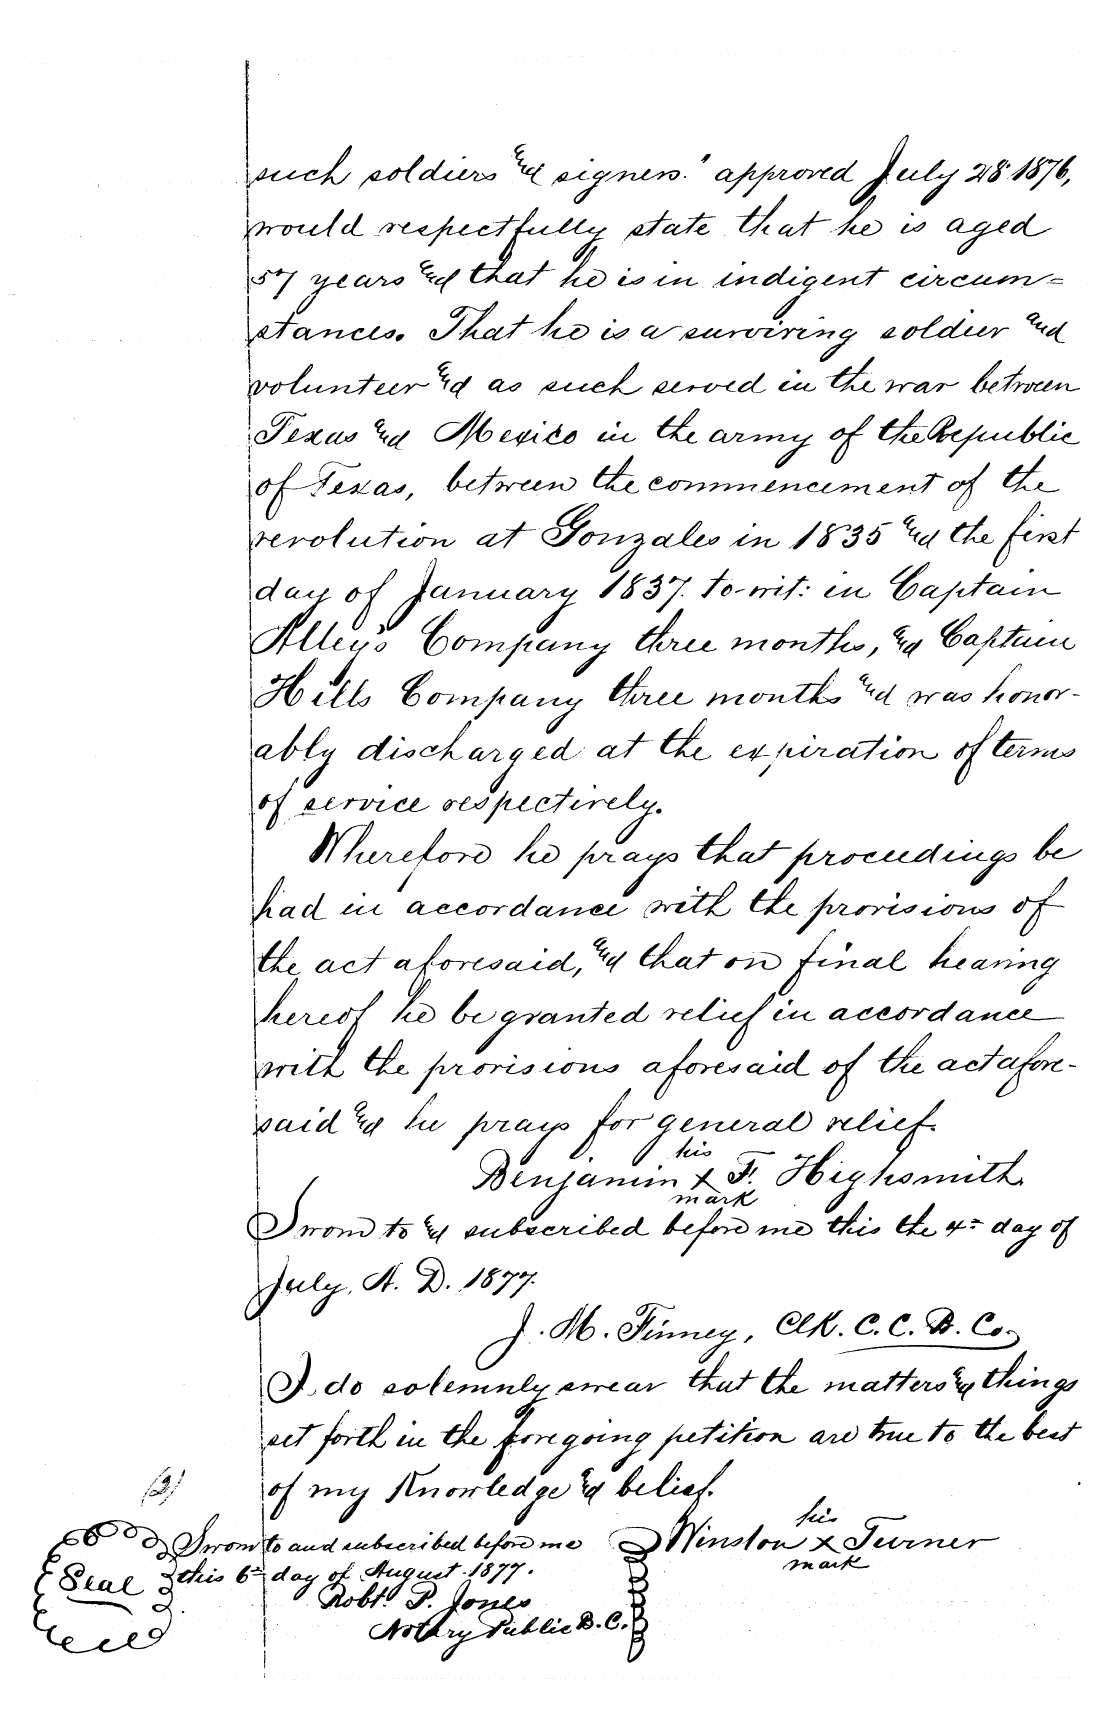 such soldiers and signers." approved July 28 1876,
would respectfully state that he is aged
57 years and that he is in indigent circum=
stances. That he is a surviving soldier and
volunteer and as such served in the war between
Texas and Mexico in the army of the Republic
of Texas, between the commencement of the
revolution at Gonzales in 1835 and the first
day of January 1837. to-wit: in Captain
Alley's Company three months, and Captain
Hills Company three months and was honor-
ably discharged at the expiration of terms
of service respectively.
Wherefore he prays that proceedings be
had in accordance with the provisions of
the act aforesaid, and that on final hearing
hereof he be granted relief in accordance
with the provisions aforesaid of the act afore-
said and he prays for general relief.
his
Benjamin x F. Highsmith.
mark
Sworn to and subscribed before me this the 4= day of
July, A. D. 1877.
J. M. Finney, Clk. C. C. B. Co.
I do solemnly swear that the matters and things
set forth in the foregoing petition are true to the best
of my Knowledge and belief.
(2)
his
Winston x Turner
mark
Sworn to and subscribed before me
this 6= day of August 1877.
Seal
Robt. P. Jones
Notary Public B. C.